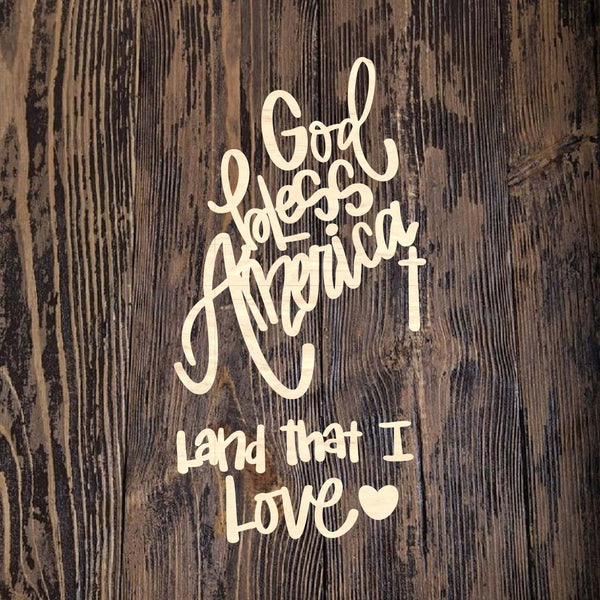 God
bless
America
Land that I
Love